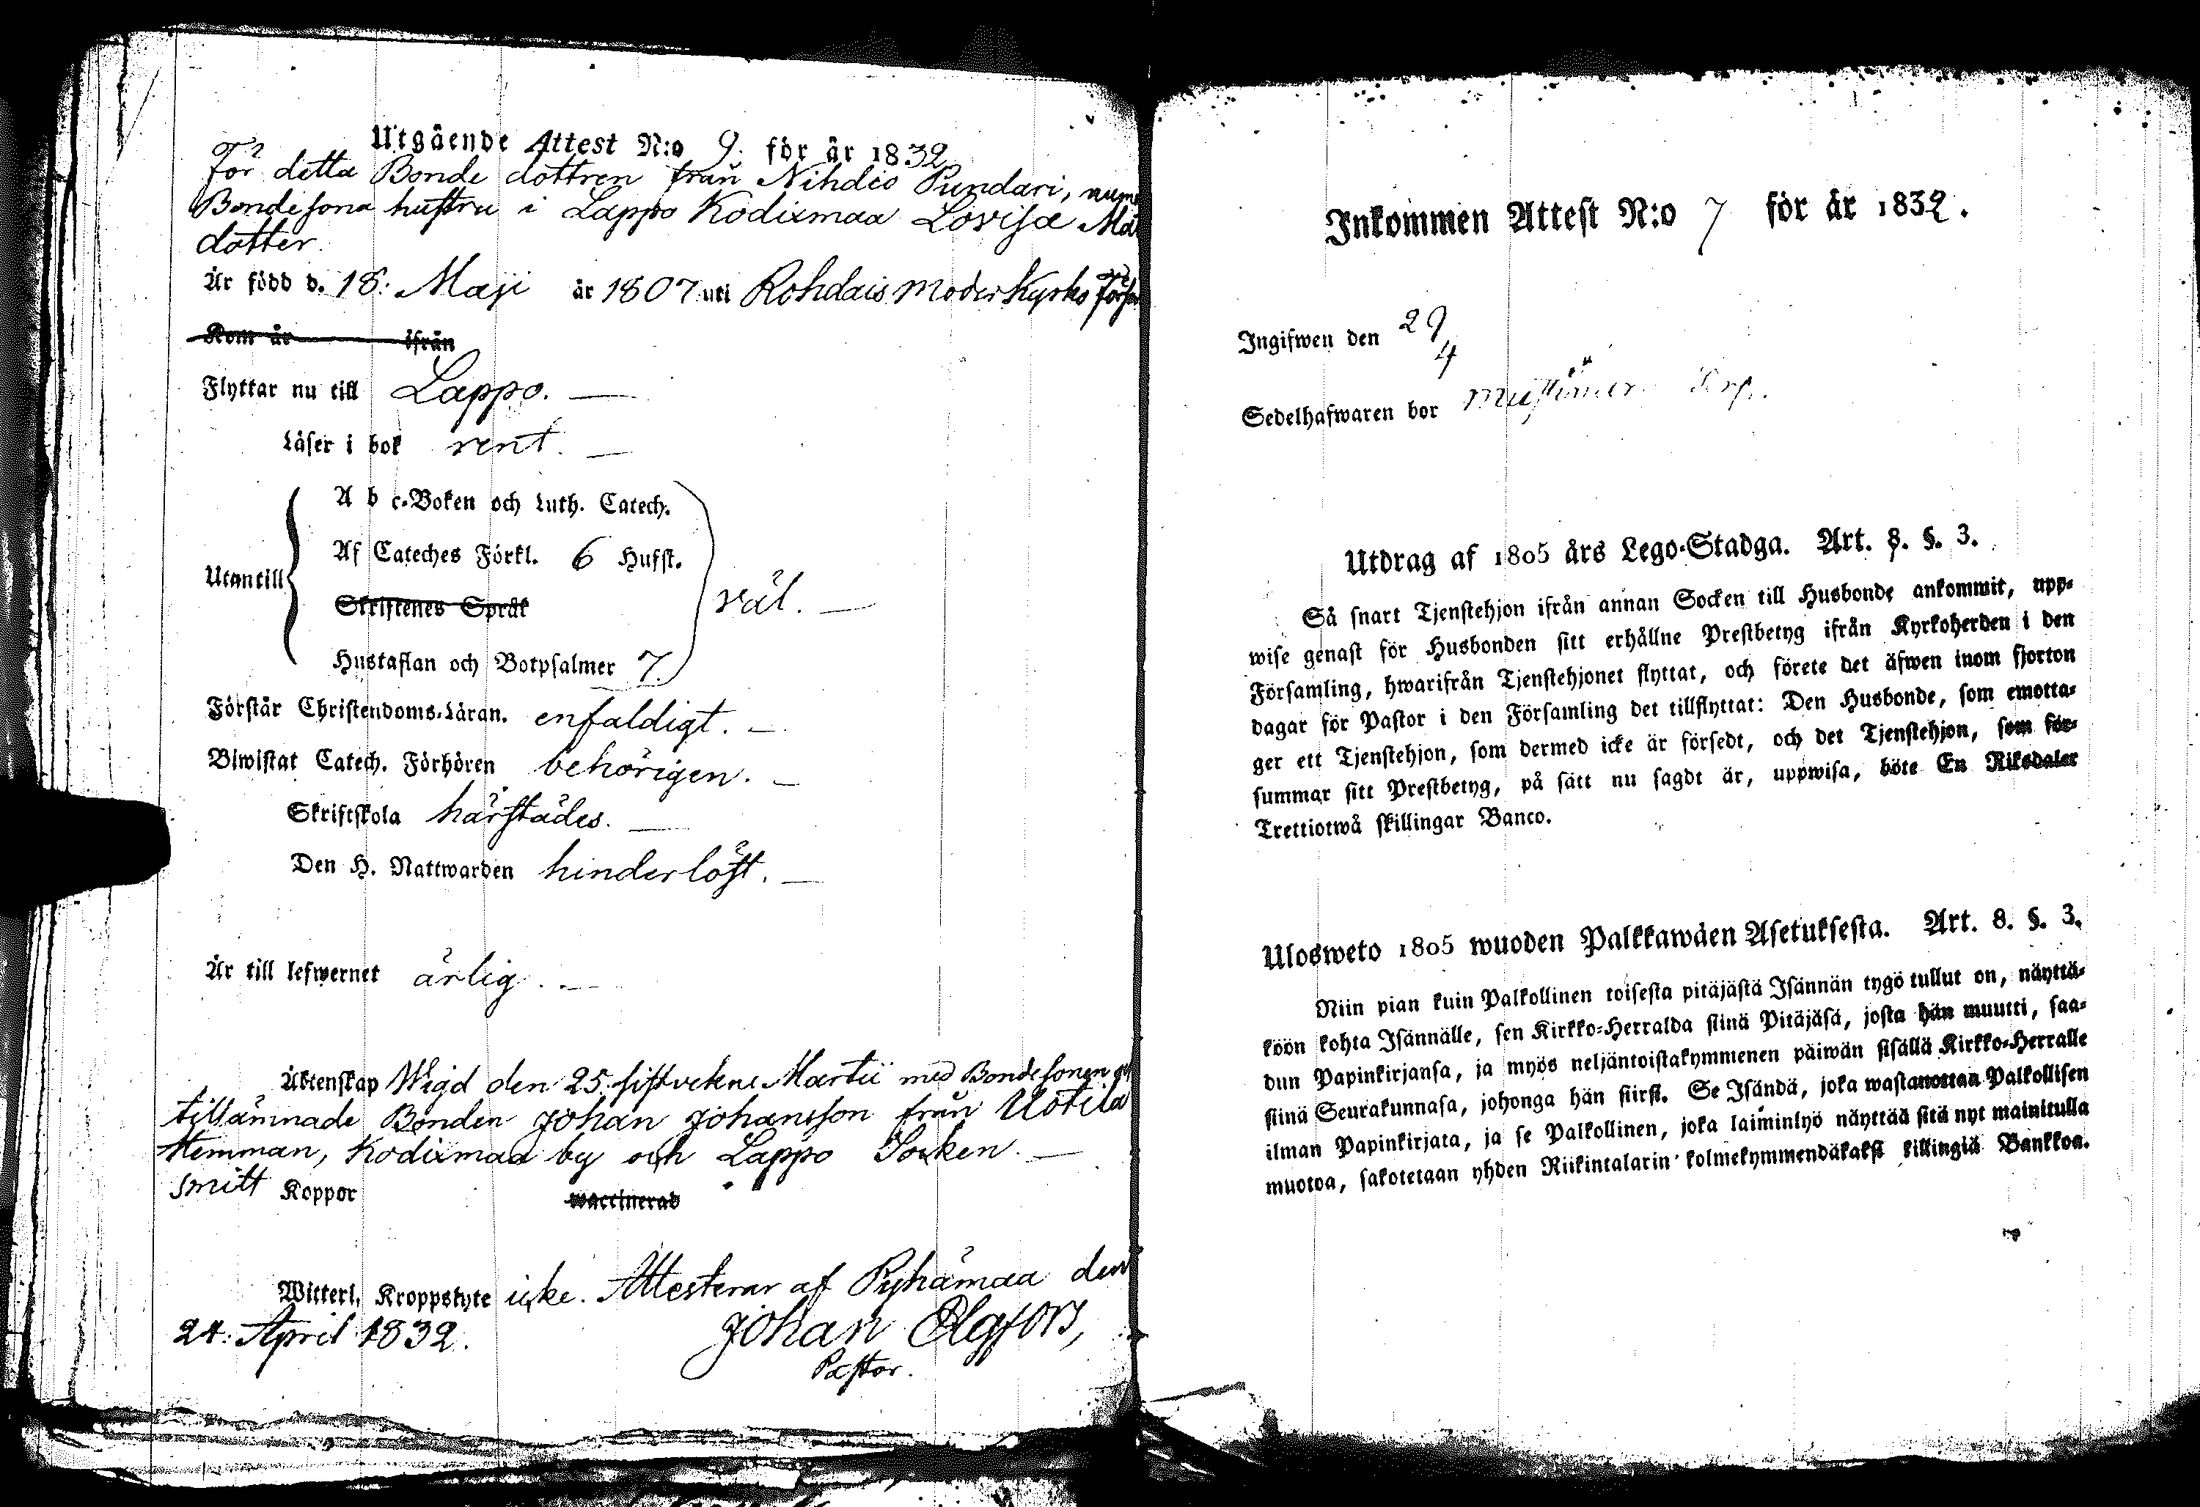 Utgående Attest N:o 9. för år 1832
För detta Bonde dottren från Nihdio Pundari,
Bondesona hustru i Lappo Kodixmaa Lovisa
dotter.
Är född d. 18: Maji år 1807 uti Rohdais Moder Kyrko
Kom år ifrån
Flyttar nu till Lappo. —
Läser i bok rent. —
A b c-Boken och Luth. Catech.
Af Cateches Förkl. 6 Hufst.
Utantill
Skriftenes Språk
väl. —
Hustaflan och Botpsalmer 7.
Förstår Christendoms-Läran. enfaldigt. —
Biwistat Catech. Förhören behörigen. —
Skriftskola härstädes. —
Den H. Nattwarden hinderlöst. —
Är till lefwernet ärlig. —
Äktenskap Wigd den 25. sistvekne Martii med Bondesonen
tillämnade Bonden Johan Johansson från Uotila
Hemman, Kodixmaa by och Lappo Socken. —
Smitt Koppor waccinerad
Witterl. Kroppslyte icke. Attesterar af Pyhämaa den
24: April 1832. Johan Elgfors,
Pastor.
Inkommen Attest N:o 7 för år 1832.
Ingifwen den 29/4
Sedelhafwaren bor
Utdrag af 1805 års Lego-Stadga. Art. 8. §. 3.
Så snart Tjenstehjon ifrån annan Socken till Husbonde ankommit, upp-
wise genast för Husbonden sitt erhållne Prestbetyg ifrån Kyrkoherden i den
Församling, hwarifrån Tjenstehjonet flyttat, och förete det äfwen inom fjorton
dagar för Pastor i den Församling det tillflyttat: Den Husbonde, som emotta-
ger ett Tjenstehjon, som dermed icke är försedt, och det Tjenstehjon, som för-
summar sitt Prestbetyg, på sätt nu sagdt är, uppwisa, böte En Riksdaler
Trettiotwå skillingar Banco.
Ulosweto 1805 wuoden Palkkawäen Asetuksesta. Art. 8. §. 3.
Niin pian kuin Palkollinen toisesta pitäjästä Isännän tygö tullut on, näyttä-
köön kohta Isännälle, sen Kirkko-Herralda siinä Pitäjäsä, josta hän muutti, saa-
dun Papinkirjansa, ja myös neljäntoistakymmenen päiwän sisällä Kirkko-Herralle
siinä Seurakunnasa, johonga hän siirsi. Se Isändä, joka wastanottaa Palkollisen
ilman Papinkirjata, ja se Palkollinen, joka laiminlyö näyttää sitä nyt mainitulla
muotoa, sakotetaan yhden Riikintalarin kolmekymmendäkaksi killingiä Bankkoa.